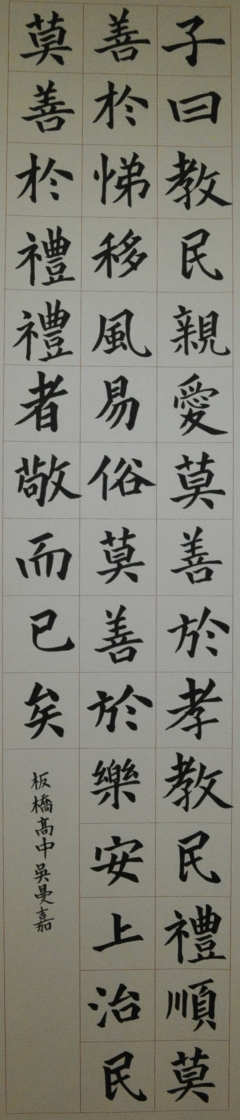 子曰教民親愛莫善於孝教民禮順莫
善於悌移風易俗莫善於樂安上治民
莫善於禮禮者敬而已矣
板橋高中吳曼嘉